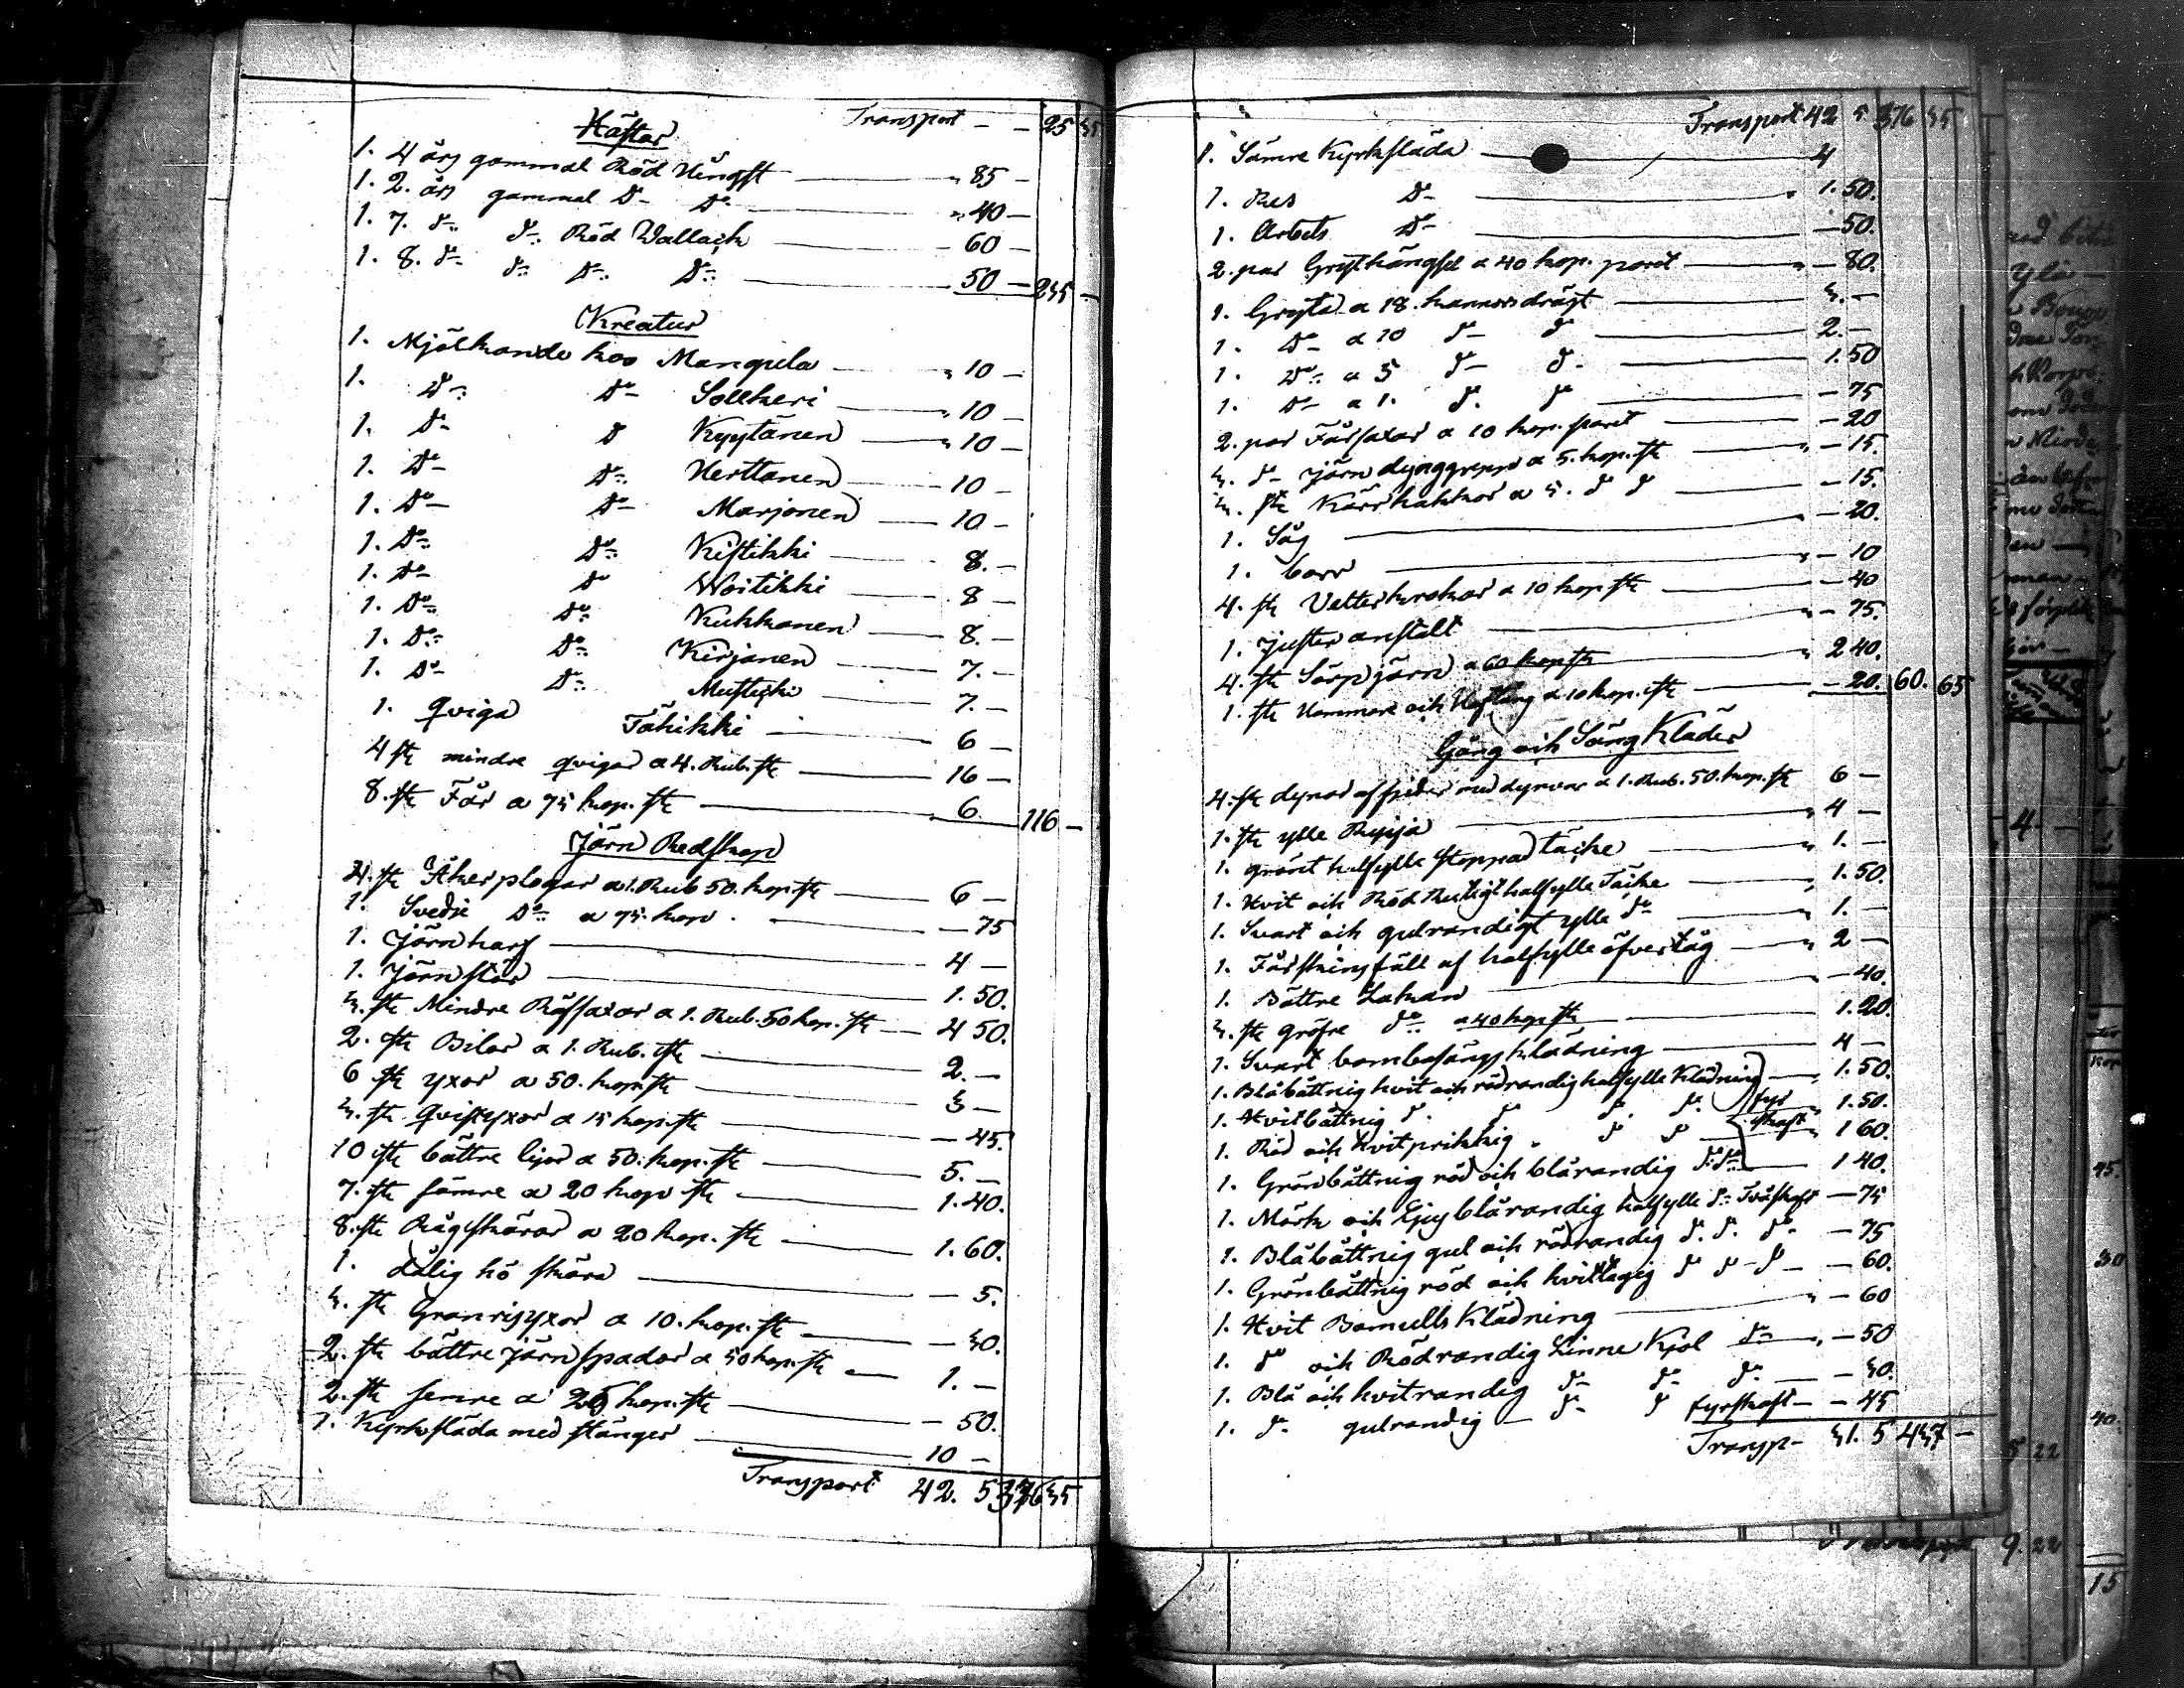 Transport - - 25 35
Hästar
1. 4 års gammal Röd Hingst - 85 -
1. 2. års gammal Do Do - 40 -
1. 7. do do Röd Wallach - 60 -
1. 8. do do Do Do - 50 - 235 -
Kreatur
1. Mjölkande koo Mangela - 10 -
1. Do Do Sollkeri - 10 -
1. Do D Kyytänen - 10 -
1. Do Do Herttanen - 10 -
1. Do Do Marjonen - 10 -
1. Do Do Kistikki - 8. -
1. Do Do Woitikki - 8 -
1. Do Do Kukkanen - 8. -
1. Do Do Kirjanen - 7. -
1. Do Do Mustikki - 7. -
1. qviga Tähikki - 6 -
4 st mindre qvigor a 4. Rub. st - 16 -
8. st Får a 75 kop. st - 6. 116 -
Järn Redskap
4. st Åkerplogar a 1. Rub 50. kop. st - 6 -
1. Svedje Do a 75. kop. - 75
1. Järnharf - 4 -
1. Järnstör - 1. 50.
3. st Mindre Räfsaxar a 1. Rub. 50 kop. st - 4 50.
2. st Bilor a 1. Rub. st - 2. -
6 st yxor a 50. kop. st - 3 -
3. st qvistyxor a 15 kop. st - 45.
10 st bättre liar a 50. kop. st - 5. -
7. st sämre a 20 kop st - 1. 40.
8. st Rågskäror a 20 kop. st - 1. 60.
1. dålig hö skära - 5.
3. st Granrisyxor a 10. kop. st - 30.
2. st bättre järnspador a 50 kop. st - 1. -
2. st semre a 25 kop. st - 50.
1. Kyrksläda med stänger - 10 -
Transport 42. 5 376 35
Transport 42 5 376 35
1. Sämre Kyrksläda - 4
1. Res Do - 1. 50.
1. Arbets Do - 50.
2. par Grythängsel a 40 kop. paret - 80.
1. Gryta a 18. kannors drägt - 3. -
1. Do a 10 do do - 2. -
1. Do a 5 do do - 1. 50
1. Do a 1. do do - 75
2. par Fårsaxar a 10 kop. paret - 20
3. do järn dynggrepar a 5. kop. st - 15.
3. st Kärrhakkor a 5. do do - 15.
1. Såg - 20.
1. borr - 10
4. st Vetterkrokar a 10 kop st - 40
1. juster anstalt - 75.
4. st Sörpjärn a 60 kop st - 2 40.
1. st Hammare och Hoftång a 10 kop. st - 20. 60. 65
Gång och Säng Kläder
4. st dynor af fjeder med dynvar a 1. Rub. 50. kop. st 6 -
1. st ylle Ryyjä - 4 -
1. grönt halfylle stoppad täcke - 1. -
1. Hvit och Röd Rutigt halfylle Täcke - 1. 50.
1. Svart och gulrandigt ylle do - 1. -
1. Fårskinsfäll af halfylle öfvertåg - 2 -
1. Bättre Lakan - 40.
3. st gröfre do a 40 kop st - 1. 20.
1. Svart bombasängs klädning - 4 -
1. Blåbåttnig hvit och rödrandig halfylle Klädning - 1. 50.
1. Hvitbåttnig do do do do fyr - 1. 50.
1. Röd och Hvitprikkig. do do skaft - 1 60.
1. Grönbåttnig röd och blårandig do do - 1 40.
1. Mörk och ljus blårandig halfylle do Tvåskaft - 75
1. Blåbåttnig gul och rödrandig do do do - 75
1. Grönbåttnig röd och do do do - 60.
1. Hvit Bomulls Klädning - 60
1. do och Rödrandig Linne Kjol do - 50
1. Blå och hvitrandig do do do - 30.
1. do gulrandig do do fyrskaft - 45
Transp - 31. 5 437 -